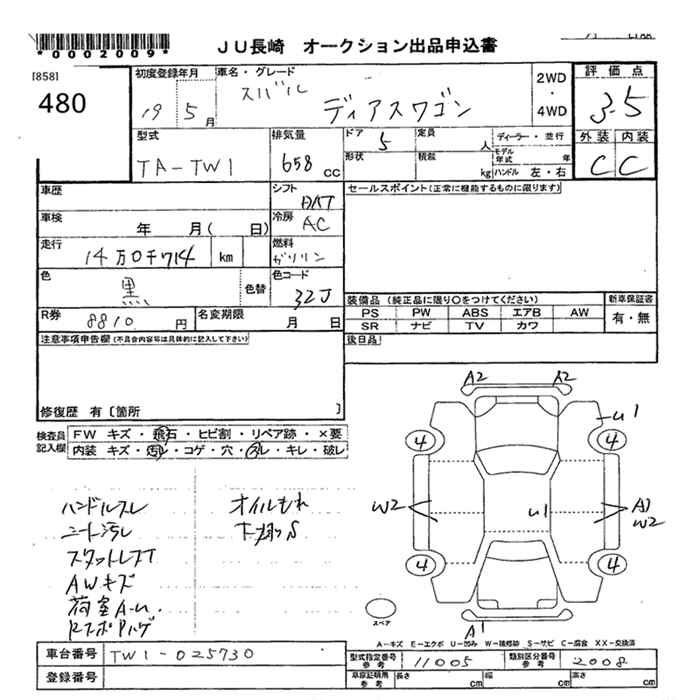 *0002009*
JU長崎 オークション出品申込書
[858]
480
初度登録年月
19 5月
車名・グレード
スバル
ディアスワゴン
2WD
・
4WD
評価点
3.5
外装 内装
C C
型式
TA-TW1
排気量
658 cc
ドア
5
定員
人
ディーラー・並行
モデル年式 年
形状
積載
kg
ハンドル 左・右
車歴
シフト
車検
年 月( 日)
冷房
AC
セールスポイント(正常に機能するものに限ります)
走行
14万0千714 km
燃料
ガソリン
色
黒
色替
色コード
32J
R券
8810円
名変期限
月 日
装備品(純正品に限り○をつけてください)
PS PW ABS エアB AW
SR ナビ TV カワ
新車保証書
有・無
注意事項申告欄(不具合内容等は具体的に記入して下さい)
後日品
修復歴 有〔箇所 〕
検査員記入欄
FW キズ・飛石・ヒビ割・リペア跡・×要
内装 キズ・汚レ・コゲ・穴・スレ・キレ・破レ
ハンドルスレ
シート汚レ
スタットレスT
AWキズ
荷室A-U.
RスポPハゲ
オイルもれ
下廻りS
A2 A2
U1
4 4
W2
U1
A1
W2
4 4
A1
スペア
A-キズ E-エクボ U-凹み W-補修跡 S-サビ C-腐食 XX-交換済
車台番号
TW1-025730
登録番号
型式指定番号
参考
11005
類別区分番号
参考
2008
車庫証明用
参考
長さ cm
幅 cm
高さ cm